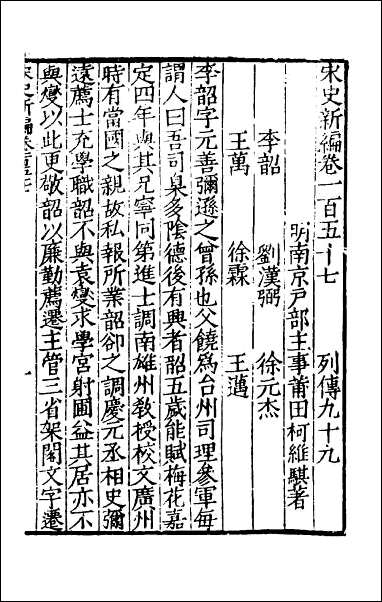 宋史新編卷一百五十七　列傳九十九
明南京戸部主事莆田柯維騏著
李韶　劉漢弼　徐元杰
王萬　徐霖　王邁
李韶字元善彌遜之曾孫也父饒爲台州司理參軍每
謂人曰吾司臬多陰德後有興者韶五歲能賦梅花嘉
定四年與其兄寧同第進士調南雄州敎授校文廣州
時有當國之親故私報所業韶卻之調慶元丞相史彌
遠薦士充學職韶不與袁燮求學宮射圃益其居亦不
與燮以此更敬韶以廉勤薦遷主管三省架閣文字遷
宋史新編卷一百五十七　一